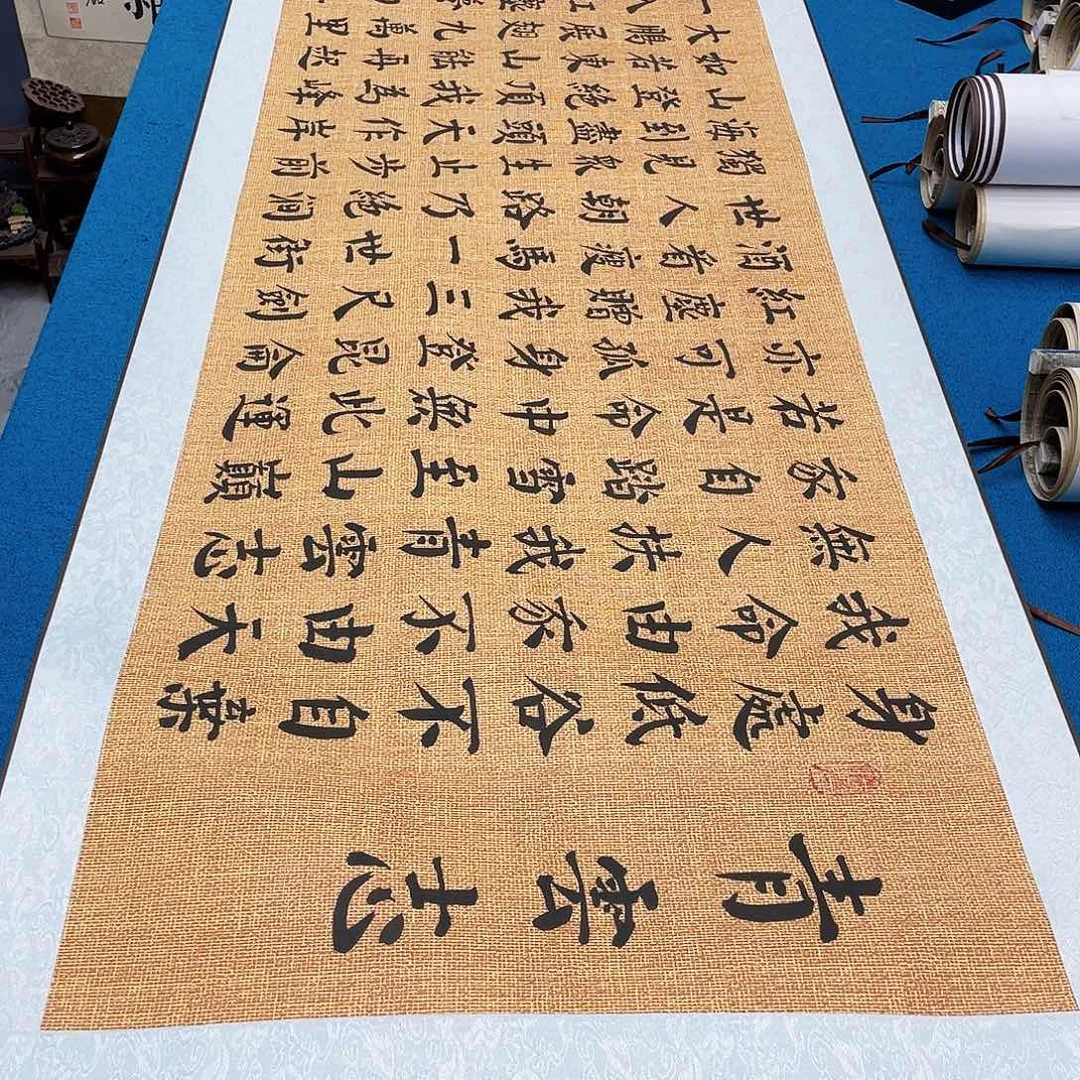 青雲志
身處低谷不自棄
我命由家不由天
無人扶我青雲志
家自踏雪至山巔
若是命中無此運
亦可孤身登昆侖
紅塵贈我三尺劍
酒者瘦馬一世街
世人朝路乃絶澗
獨見衆生止步前
海到盡頭天作岸
山登絶頂我爲峰
如若東山能再起
大鵬展翅九萬里